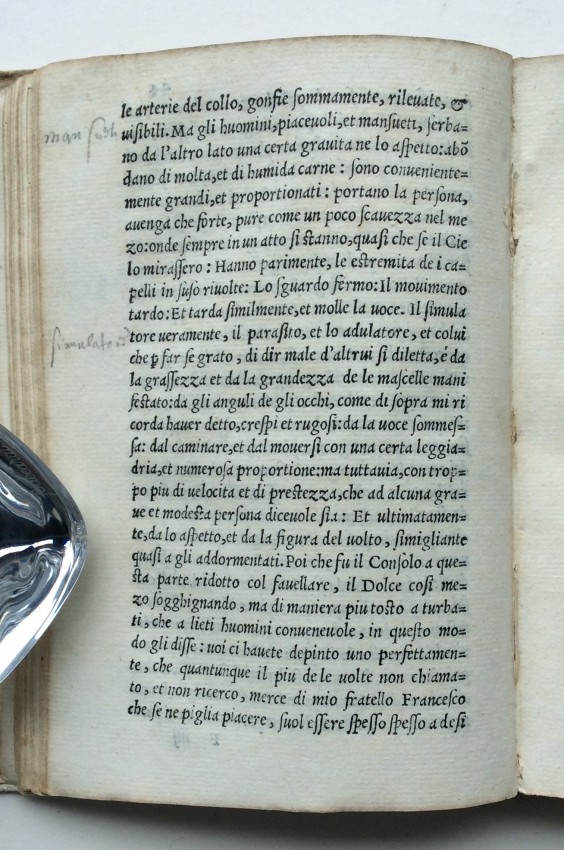 le arterie del collo, gonfie ſommamente, rileuate, &
uiſibili. Ma gli huomini, piaceuoli, et manſueti, ſerba=
no da l'altro lato una certa grauita ne lo aſpetto: abõ
dano di molta, et di humida carne: ſono conueniente=
mente grandi, et proportionati: portano la perſona,
auenga che forte, pure come un poco ſcauezza nel me
zo: onde ſempre in un atto ſi ſtanno, quaſi che ſe il Cie
lo miraſſero: Hanno parimente, le eſtremita de i ca=
pelli in ſuſo riuolte: Lo ſguardo fermo: Il mouimento
tardo: Et tarda ſimilmente, et molle la uoce. Il ſimula
tore ueramente, il paraſito, et lo adulatore, et colui
che ꝑ far ſe grato, di dir male d'altrui ſi diletta, é da
la graſſezza et da la grandezza de le maſcelle mani
feſtato: da gli anguli de gli occhi, come di ſopra mi ri
corda hauer detto, creſpi et rugoſi: da la uoce ſommeſ=
ſa: dal caminare, et dal mouerſi con una certa leggia=
dria, et numeroſa proportione: ma tuttauia, con trop=
po piu di uelocita et di preſtezza, che ad alcuna gra=
ue et modeſta perſona diceuole ſia: Et ultimatamen=
te, da lo aſpetto, et da la figura del uolto, ſimigliante
quaſi a gli addormentati. Poi che fu il Conſolo a que=
ſta parte ridotto col fauellare, il Dolce coſi me=
zo ſogghignando, ma di maniera piu toſto a turba=
ti, che a lieti huomini conueneuole, in queſto mo=
do gli diſſe: uoi ci hauete depinto uno perfettamen=
te, che quantunque il piu de le uolte non chiama=
to, et non ricerco, merce di mio fratello Franceſco
che ſe ne piglia piacere, ſuol eſſere ſpeſſo ſpeſſo a deſi
man